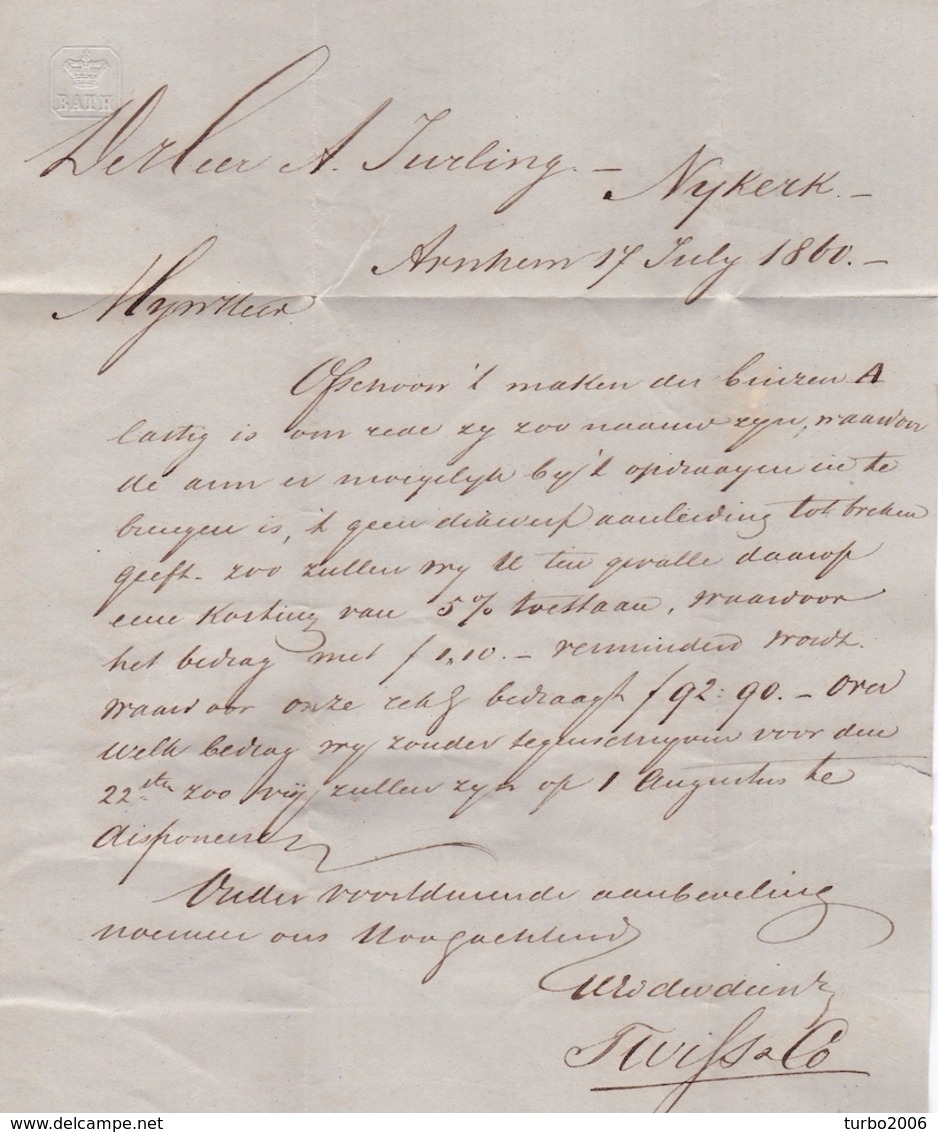 BATH
De Heer A. Jurling. –
Nykerk. –
Arnhem 17 July 1860. –
Mynheer
Ofschoon 't maken der buizen A
lastig is om rede zy zoo naauw zyn, waarvoor
de arm er moeyelyk by 't opdraagen in te
brengen is, 't geen dikwerf aanleiding tot breken
geeft. zoo zullen wy U ten gevalle daarop
eene Korting van 5% toestaan, waardoor
het bedrag met f 1,10. – verminderd wordt.
waardoor onze rekg bedraagt f 92:90. – Over
welk bedrag wy zonder tegenschryven voor den
22sten zoo vrij zullen zyn op 1 Augustus te
disponeren
Onder voortdurende aanbeveling
noemen ons Hoogachtend
UEd dw dienr
Twiss & Co
delcampe.net
turbo2006